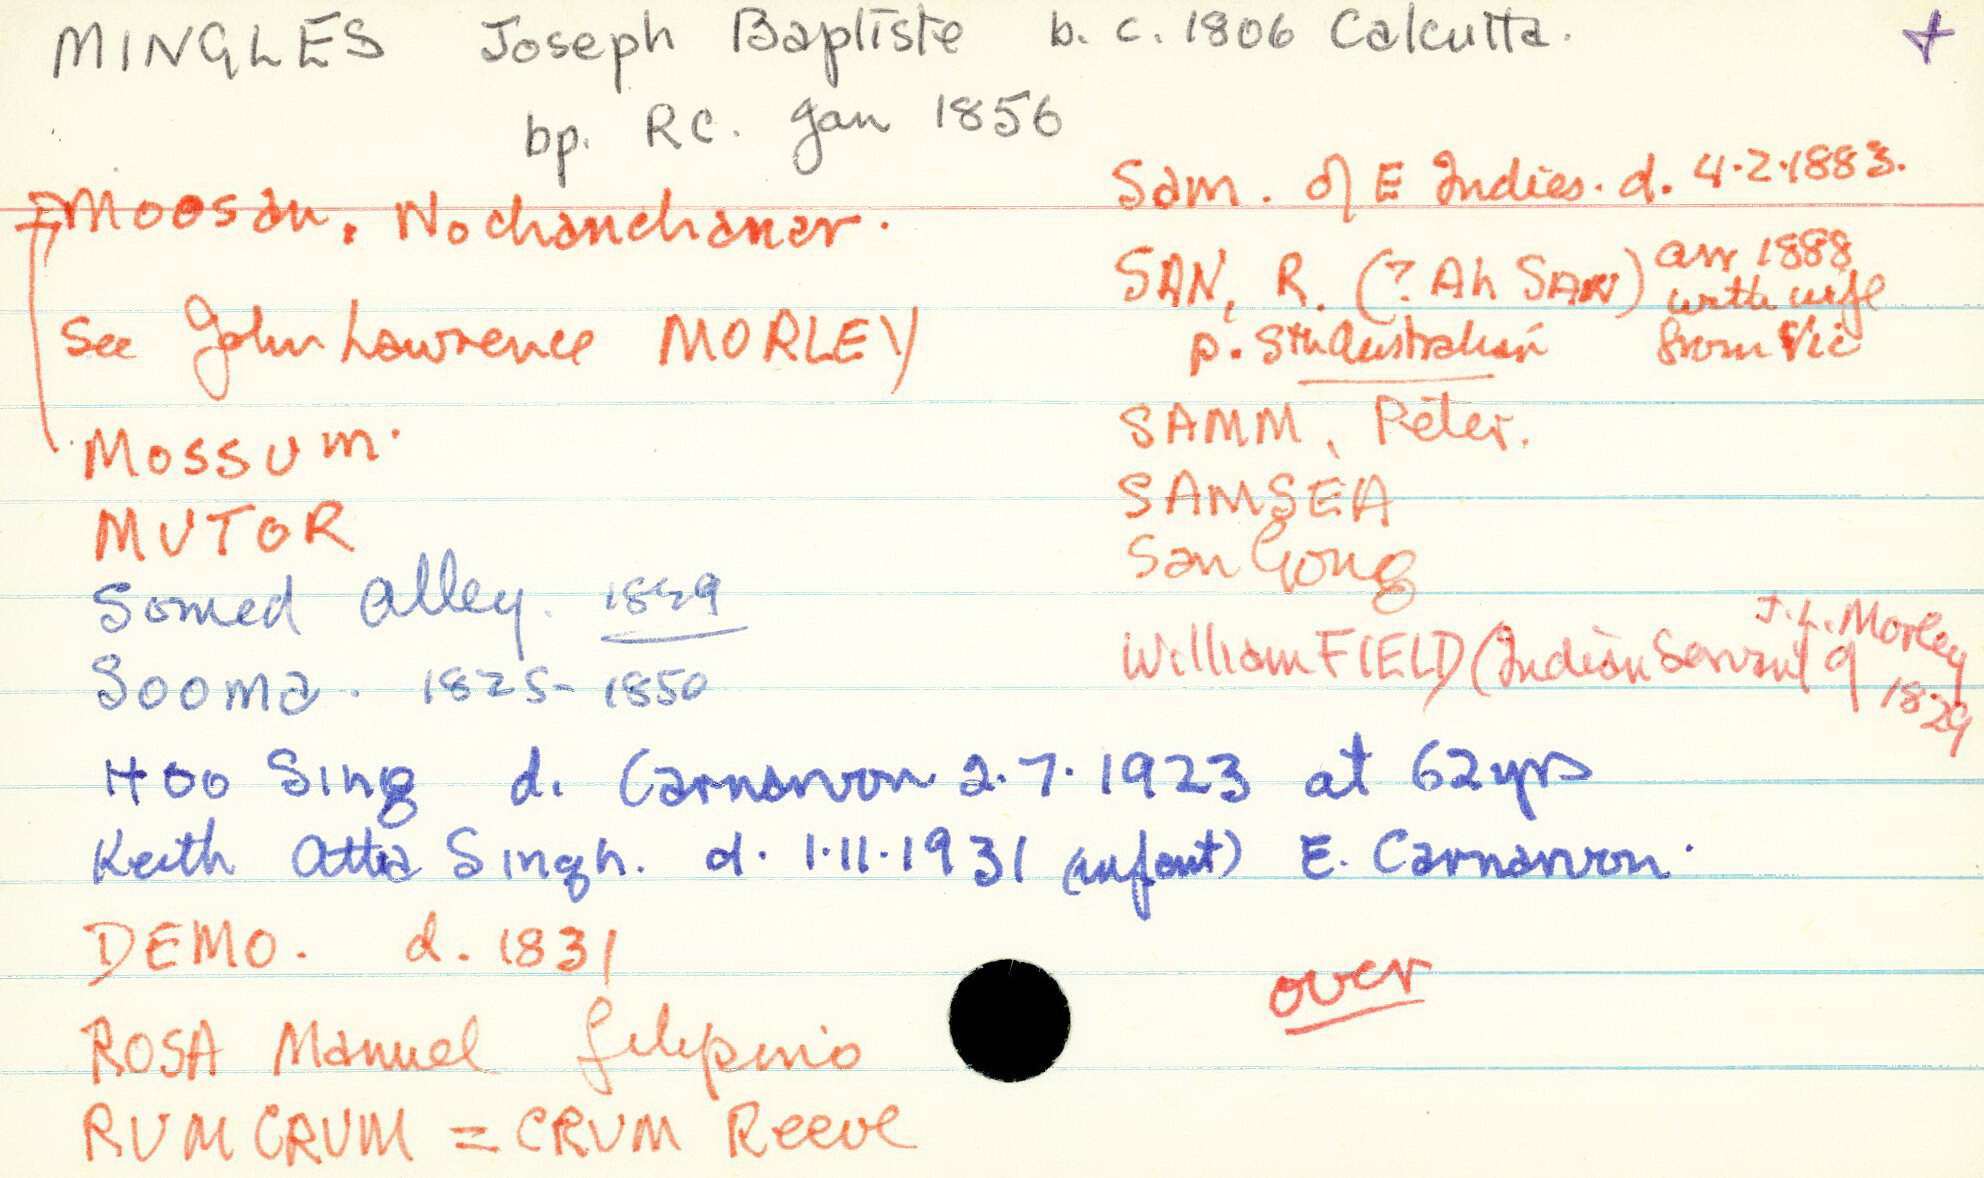 MINGLES Joseph Baptiste b. c. 1806 Calcutta.
bp. RC. Jan 1856
Moosau, Nochanchanar.
See John Lawrence MORLEY
Mossum.
MUTOR
Somed Alley. 1829
Sooma. 1825-1850
Hoo Sing d. Carnarvon 2.7.1923 at 62yrs
Keith Atta Singh. d. 1.11.1931 (infant) E. Carnarvon.
DEMO. d. 1831
ROSA Manuel filipino
RUM CRUM = CRUM Reeve
Sam. of E Indies. d. 4.2.1883.
SAN, R. (? Ah SAN) arr 1888
with wife
p. Sth Australian from Vic
SAMM, Peter.
SAMSEA
San Gong
William FIELD (Indian Servant of J.L. Morley
1829
over